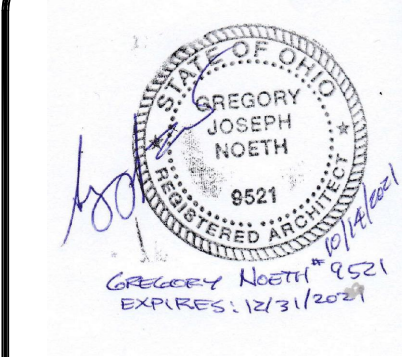 STATE OF OHIO
GREGORY
JOSEPH
NOETH
9521
REGISTERED ARCHITECT
10/14/2021
GREGORY NOETH #9521
EXPIRES: 12/31/2021